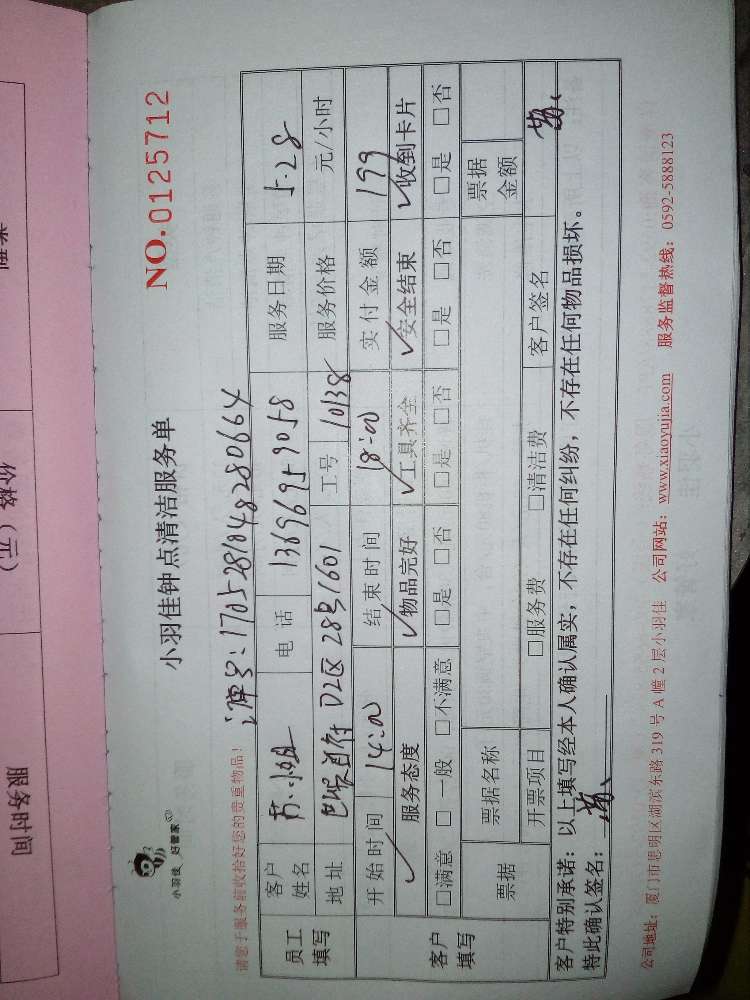 小羽佳 好管家
NO.0125712
小羽佳钟点清洁服务单
请您于服务前收拾好您的贵重物品!
单号:170528104828 0664
员工填写 客户姓名 苏小姐 电话 13696959058 服务日期 5.28
地址 D2区28号1601 工号 10138 服务价格 元/小时
客户填写 开始时间 14:00 结束时间 18:00 实付金额 199
服务态度 物品完好 工具齐全 安全结束 收到卡片
□满意 □一般 □不满意 □是 □否 □是 □否 □是 □否 □是 □否
票据 票据名称 票据金额
开票项目 □服务费 □清洁费 客户签名
客户特别承诺:以上填写经本人确认属实,不存在任何纠纷,不存在任何物品损坏。
特此确认签名:
公司地址:厦门市思明区湖滨东路319号A幢2层小羽佳 公司网站:www.xiaoyujia.com 服务监督热线:0592-5888123
价格(元)
服务时间